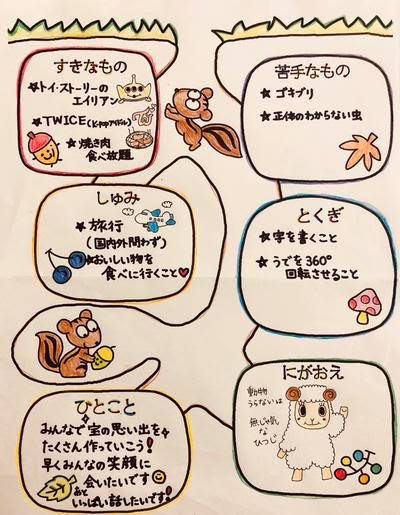 すきなもの
★トイ・ストーリーの
エイリアン
★TWICE(K-popアイドル)
★焼き肉
食べ放題
苦手なもの
★ゴキブリ
★正体のわからない虫
しゅみ
★旅行
(国内外問わず)
★おいしい物を
食べに行くこと♥
とくぎ
★字を書くこと
★うでを360°
回転させること
ひとこと
みんなで宝の思い出を
たくさん作っていこう!
早くみんなの笑顔に
会いたいです
あと
いっぱい話したいです!
にがおえ
動物
うらないは
無じゃ気
な
ひつじ